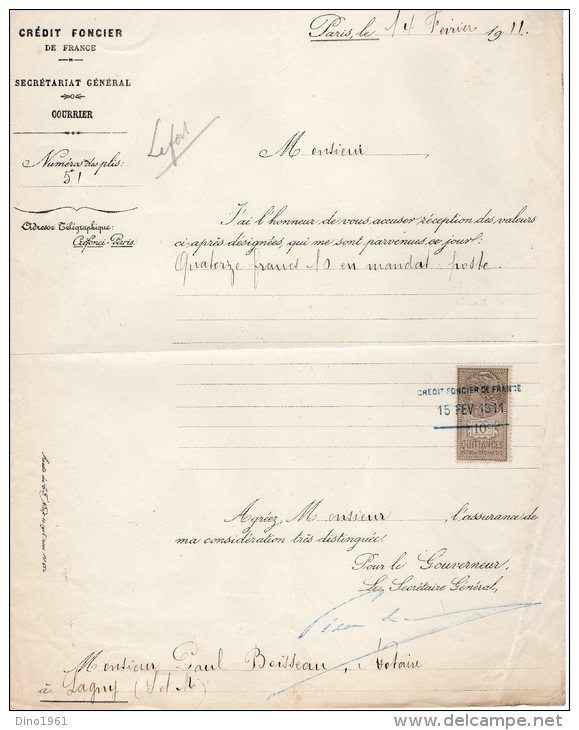 CRÉDIT FONCIER
DE FRANCE
SECRÉTARIAT GÉNÉRAL
COURRIER
Numéros des plis:
51
Adresse Télégraphique:
Créfonci-Paris.
Paris, le 14 Février 1911.
Lefort
Monsieur,
J'ai l'honneur de vous accuser réception des valeurs
ci-après désignées, qui me sont parvenues ce jour:
Quatorze francs 10 en mandat-poste.
CREDIT FONCIER DE FRANCE
15 FEV 1911
10c
QUITTANCES
Agréez, Monsieur, l'assurance de
ma considération très distinguée.
Pour le Gouverneur,
Le Secrétaire Général,
Monsieur Paul Boisseau, Notaire
à Lagny (S et M)
Dino1961
delcampe.net